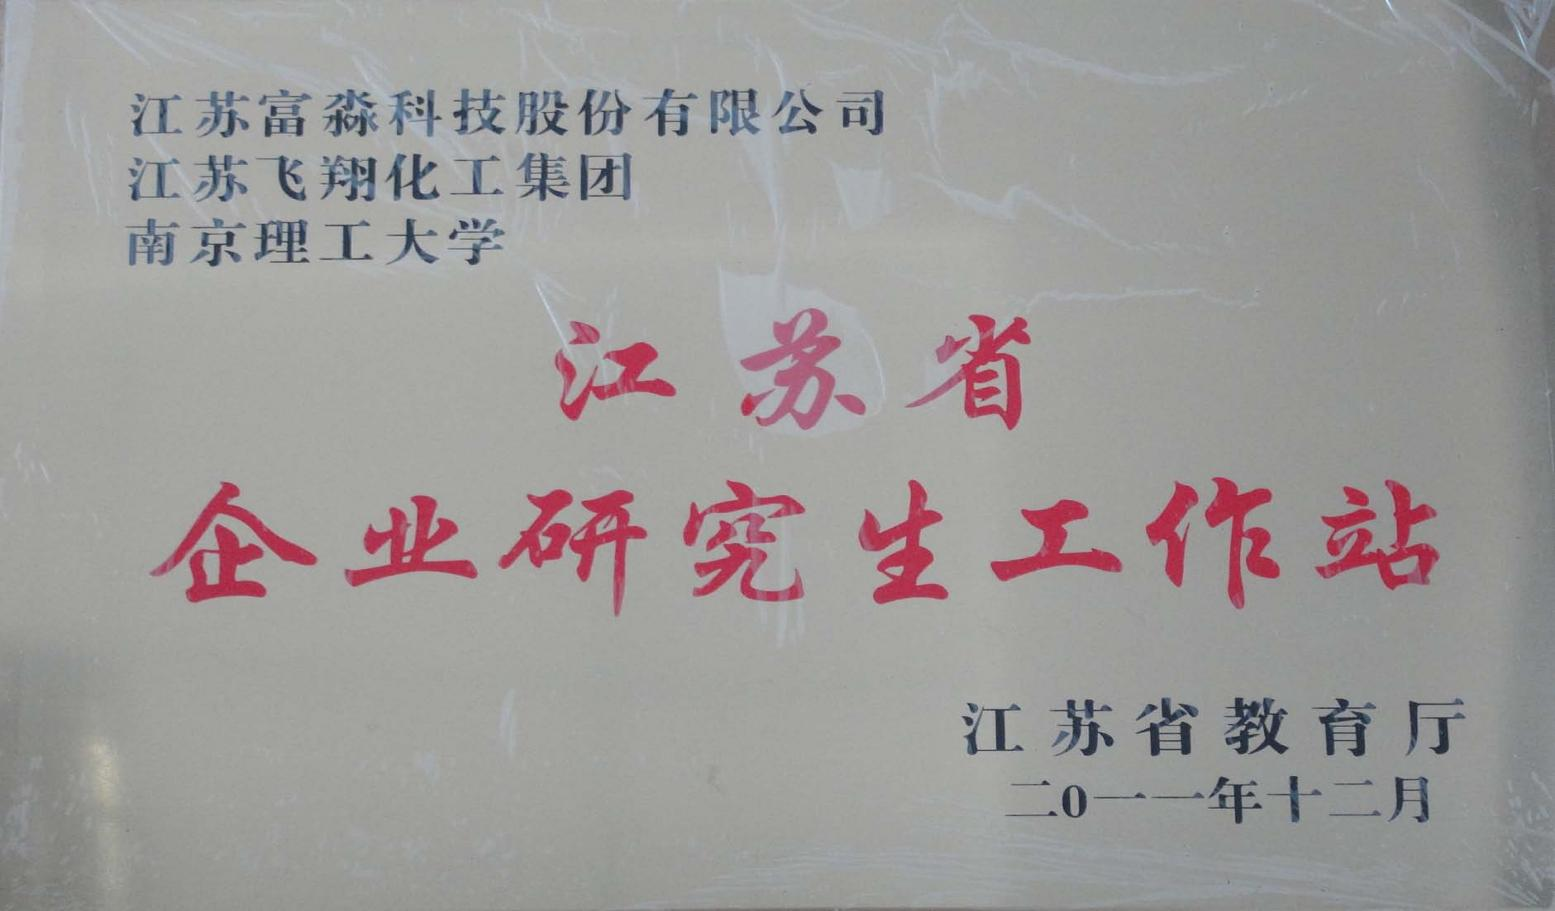 江苏富淼科技股份有限公司
江苏飞翔化工集团
南京理工大学
江苏省
企业研究生工作站
江苏省教育厅
二0一一年十二月